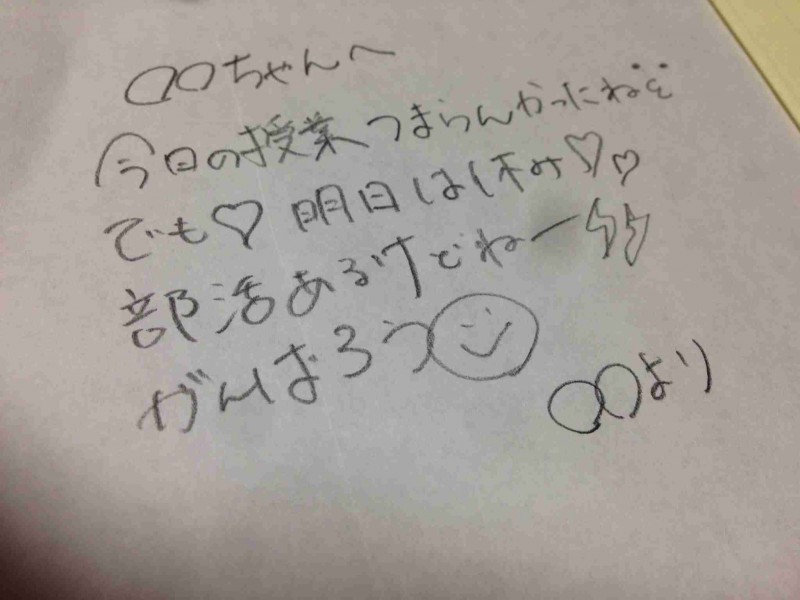 〇〇ちゃんへ
今日の授業つまらんかったね
でも♡明日は休み♡♡
部活あるけどねー
がんばろう
〇〇より